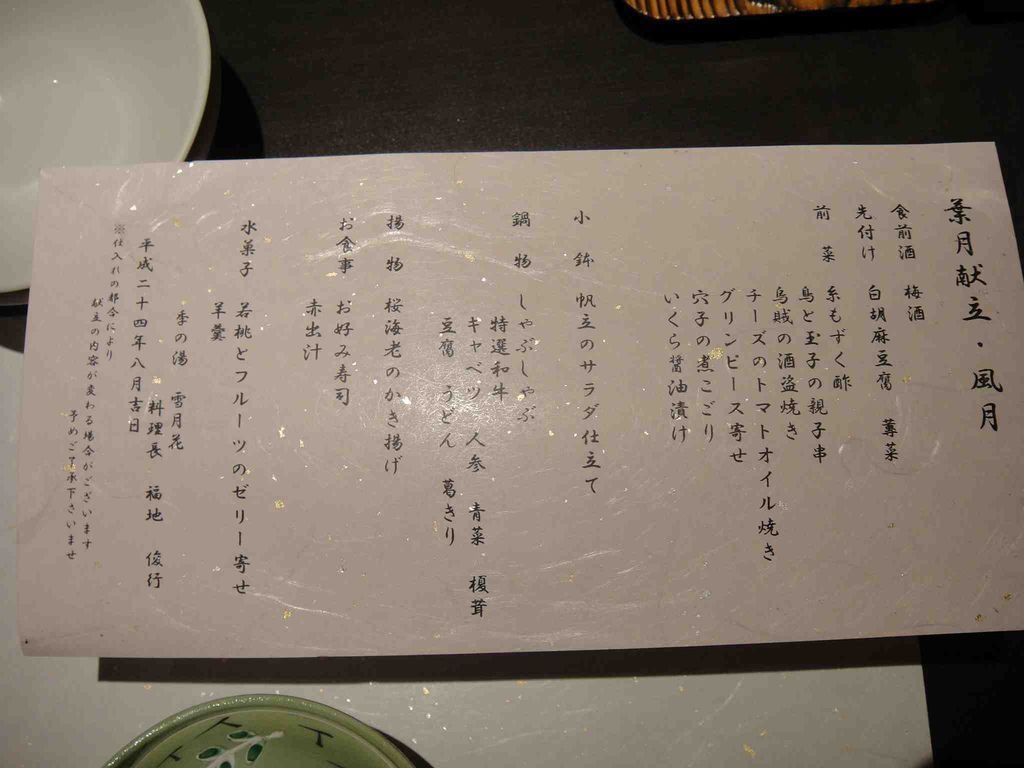 葉月献立・風月
食前酒 梅酒
先付け 白胡麻豆腐 蓴菜
前菜 糸もずく酢
鳥と玉子の親子串
烏賊の酒盗焼き
チーズのトマトオイル焼き
グリンピース寄せ
穴子の煮こごり
いくら醤油漬け
小鉢 帆立のサラダ仕立て
鍋物 しゃぶしゃぶ
特選和牛
キャベツ 人参 青菜 榎茸
豆腐 うどん 葛きり
揚物 桜海老のかき揚げ
お食事 お好み寿司
赤出汁
水菓子 若桃とフルーツのゼリー寄せ
羊羹
季の湯 雪月花
料理長 福地 俊行
平成二十四年八月吉日
※仕入れの都合により
献立の内容が変わる場合がございます
予めご了承下さいませ